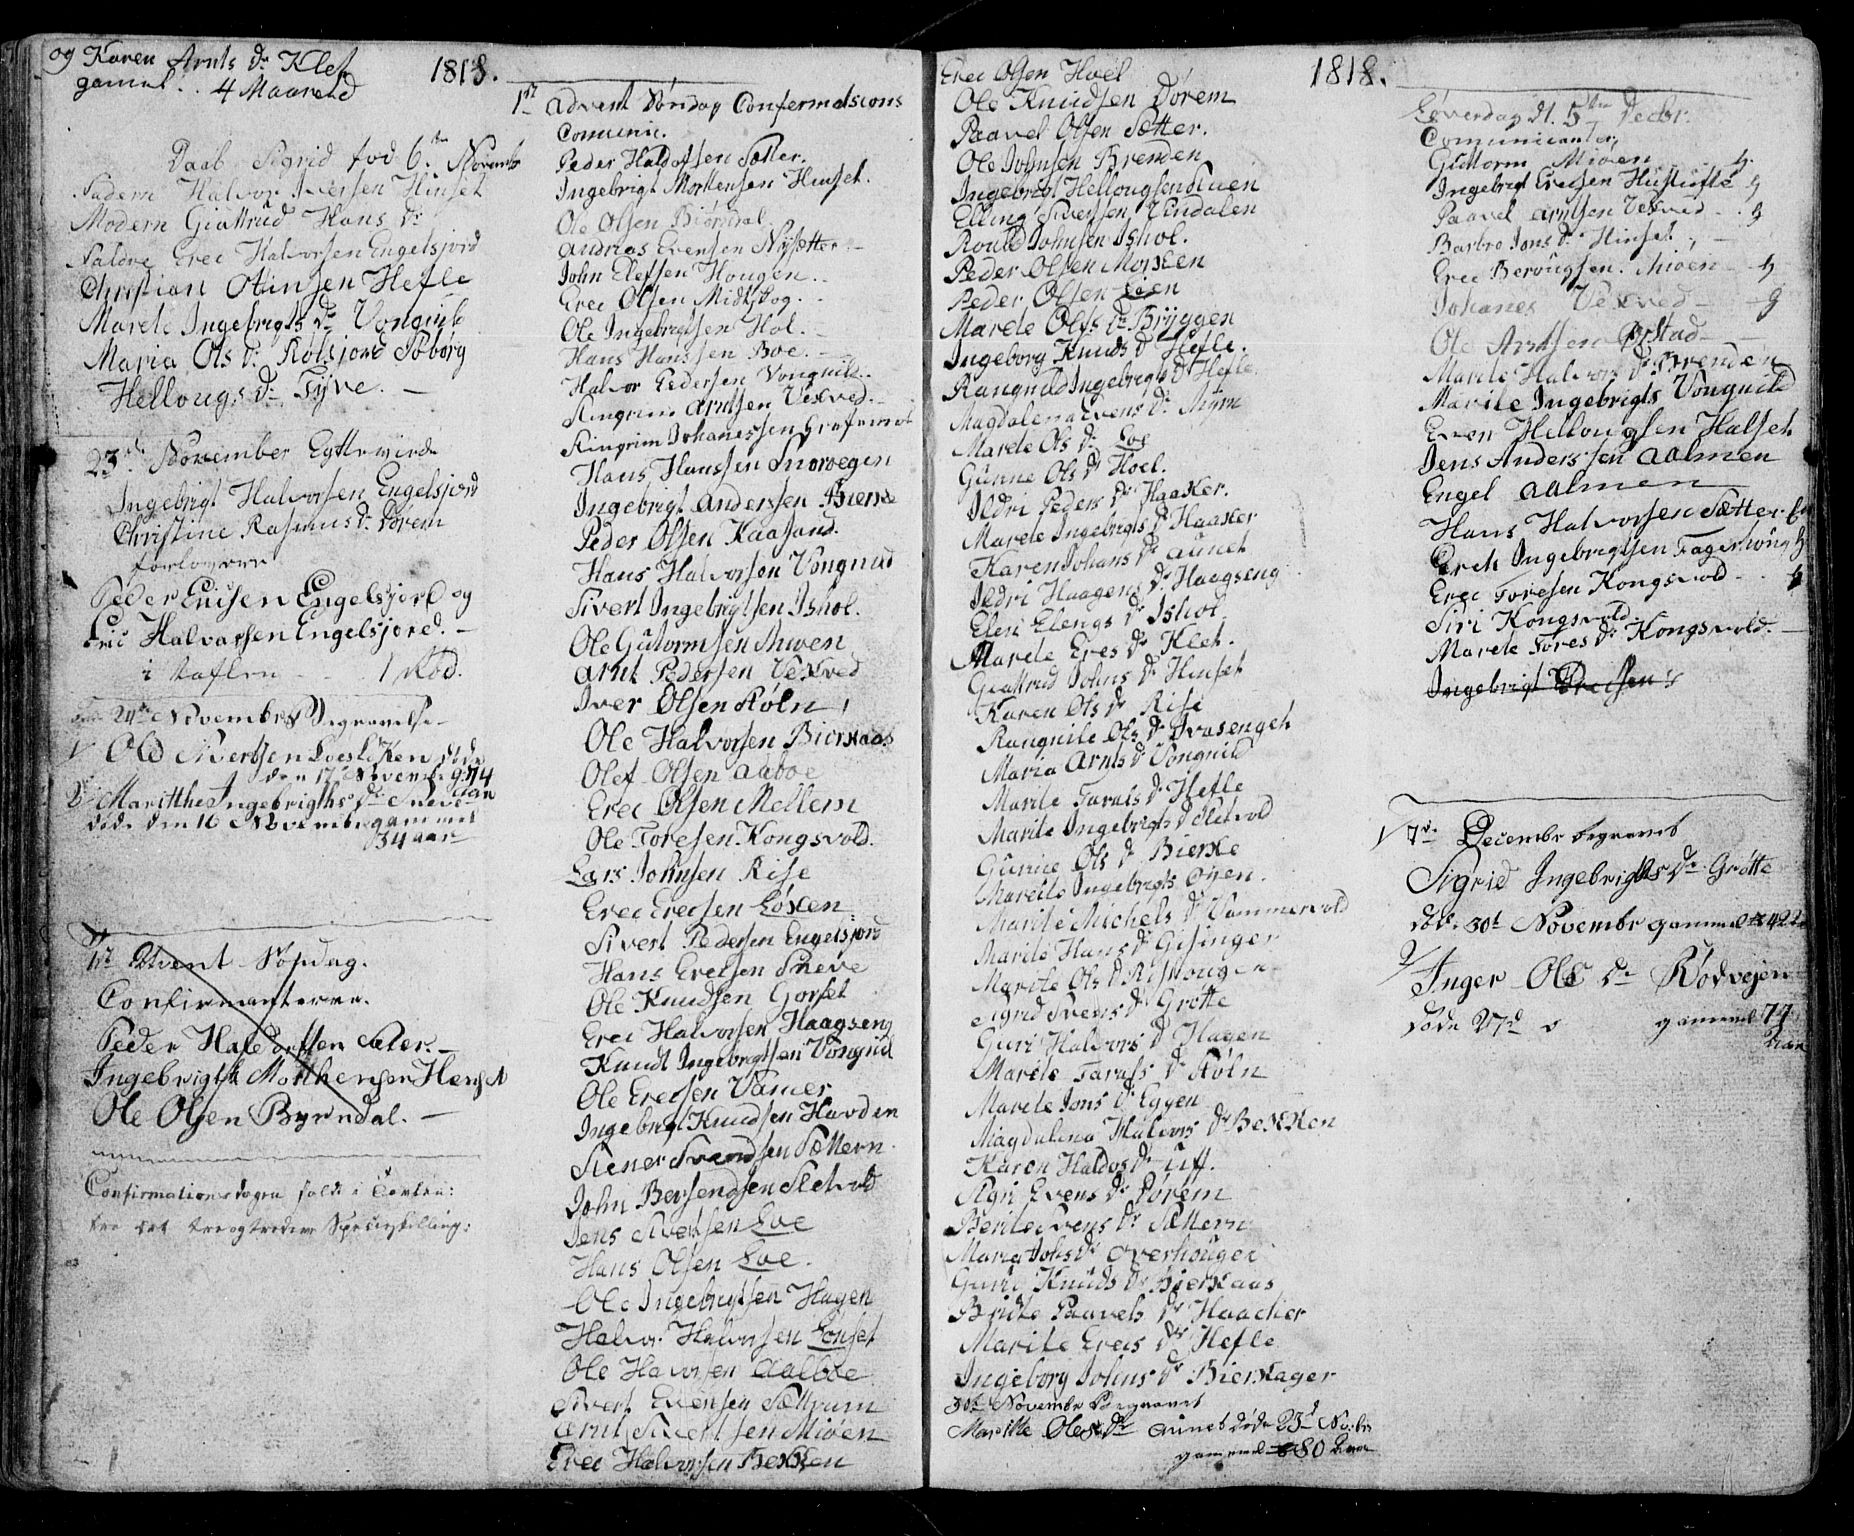 og Karen Arnts Dr Klet
gamel . . 4 Maaneed
1818.
Daab Sigrid fød 6. Novembr
Fadern Halvor Iversen Hinset
Modern Giattrud Hans Dr
Faldre Erec Halvorsen Engelsjord
Christian Otinsen Hefle
Marete Ingebrigts Dr Vongnild
Maria Ols Dr Rolsjord Soborg
Hellougs Dr Tyve. —
23 November Egtteviede
Ingebrigt Halvorsen Engelsjord
Christine Rasmus Dr Dörem
forlovere
Peder Ericsen Engelsjord og
Eric Halvorsen Engelsjord. —
i taflen — . . 1 skod.
24 Novembr Begravelse
1/ Ole Sivertsen Loeslokken døde
den 17 Novembr g: 74
Aar
2/ Maritthe Ingebrigths Dr Sneve
døde den 16 Novembr gammel
34 aar
1st Advent Søndag.
Confirmanterne.
Peder Haldorsen Sæter. —
Ingebrigtk Morthensen Henset
Ole Olsen Byrndal. —
Confirmationsdagen faldt i Tavlen:
tre Let treogtredive Specieskilling:
1st Advent Søndag Confermatscons
Comunic.
Peder Haldossen Sætter.
Ingebrigt Mortensen Hinset.
Ole Olsen Biørndal
Andrias Evensen Nysetter —
John Elefsen Hougen. —
Erec Olsen Midtskog. .
Ole Ingebrigtsen Hol. —
Hans Hanssen Boe. —
Halvor Pedersen Vongnild.
Ringrim Arntsen Vexved. —
Ringrim Johanessen Grefsmoe
Hans Hanssen Snoevegen
Ingebrigt Anderssen Bierke
Peder Olsen Kaasand.
Hans Halvorsen Vongnild
Sivert Ingebrigtsen Ishol.
Ole Gutormsen Miøen
Arnt Pedersen Vexved
Iver Olsen Støln
Ole Halvorsen Bierkaas
Olef Olsen Aaboe
Erec Olsen Mellem
Ole Toresen Kongsvold.
Lars Johnsen Rise
Erec Erecsen Løxen
Sivert Pedersen Engelsjord
Hans Erecsen Sneve
Ole Knudsen Gorset
Erec Halvorsen Haagseng
Knudt Ingebrigtsen Vongnild
Ole Erecsen Vamer
Ingebrigt Knudsen Havden
Stener Svendsen Sættern
John Bersendsen Sletvold
Jens Sivertsen Loe
Hans Olsen Loe.
Ole Ingebrigtsen Hagen
Halvr Halvorsen Lonset
Ole Halvorsen Aalboe
Sivert Evensen Sættrum
Arnt Sivertsen Miøen
Erec Halvorsen Bekken
Erec Olsen Hoel
Ole Knudsen Dörem
Paavel Olsen Sætter.
Ole Johnsen Brenden
Ingebrigt Hellougsen Stuen
Elling Sivertsen Vindalen
Roald Johnsen Ishol.
Peder Olsen Morken
Peder Olsen Lien
Marete Olfs Dr Bryggen
Ingeborg Knuds Dr Hefle.
Rangnild Ingebrigts Dr Hefle
Magdalena Evens Dr Myrn
Marete Ols Dr Loe
Gunne Ols Dr Hoel.
Ildri Peders Dr Haaker.
Marete Ingebrigts Dr Haaker
Karen Johans Dr Aunet
Ildri Haagens Dr Haagseng
Eleri Elengs Dr Ishol
Marete Eres Dr Klet.
Giattrud Johns Dr Hinset
Karen Ols Dr Rise
Rangnile Ols Dr Drasenget
Maria Arnts Dr Vongnild
Marite Taralds Dr Hefle
Marite Ingebrigts Dr Sletvold
Gunne Ols Dr Bierke
Mareite Ingebrigts Oyen.
Marite Michels Dr Vammervold
Marite Hans Dr Gisinger
Marite Ols Dr Rishougen
Sigrid Svens Dr Grøtte
Guri Halvors Dr Hagen
Marete Taralfs Dr Støln
Marete Jons Dr Eggen
Magdalena Halvors Dr Bekken
Karen Haldos Dr Uff.
Sigri Evens Dr Dörem
Berite Svens Dr Sættern
Maria Johs Dr Overhouger
Guru Knuds Dr Bierkaas
Bridte Paavels Dr Haacker
Marite Erecs Dr Hefle
Ingeborg Johns Dr Bierkager
30te Novembr Begravet
Maritte Oles Dr Aunet døde 23d Novbr
gammel 80 Aar
1818.
Løverdag dt. 5te Decbr.
Comunicanter,
Guttorm Miøen — g.
Ingebrigt Erecsen Hustufte g
Paavel Arntsen Vexved — . g
Barbro Jons Dr Hinset , —
Erec Berougsen. Miøen — g
Johanes Vexved — — g
Ole Arntsen Ørstad — —
Marite Halvors Dr Brenden
Marite Ingebrigts Vongnild
Even Hellougsen Halset
Jens Anderssen Aalmen
Engel Aalmen —
Hans Halvorsen Sætter
Erek Ingebrigtsen Fagerhoug g
Erec Toresen Kongsvold — . . g
Siri Kongsvold
Marete Tores Dr Kongsvold. —
Ingebrigt Erecsen
1/ 7de Decembr begravet
Sigrid Ingebrigths Dr Grøtte
død 30t Novembr gammel 42
2/
Inger Ols Dr Rødvejen
døde 27d gammel 77
Aar